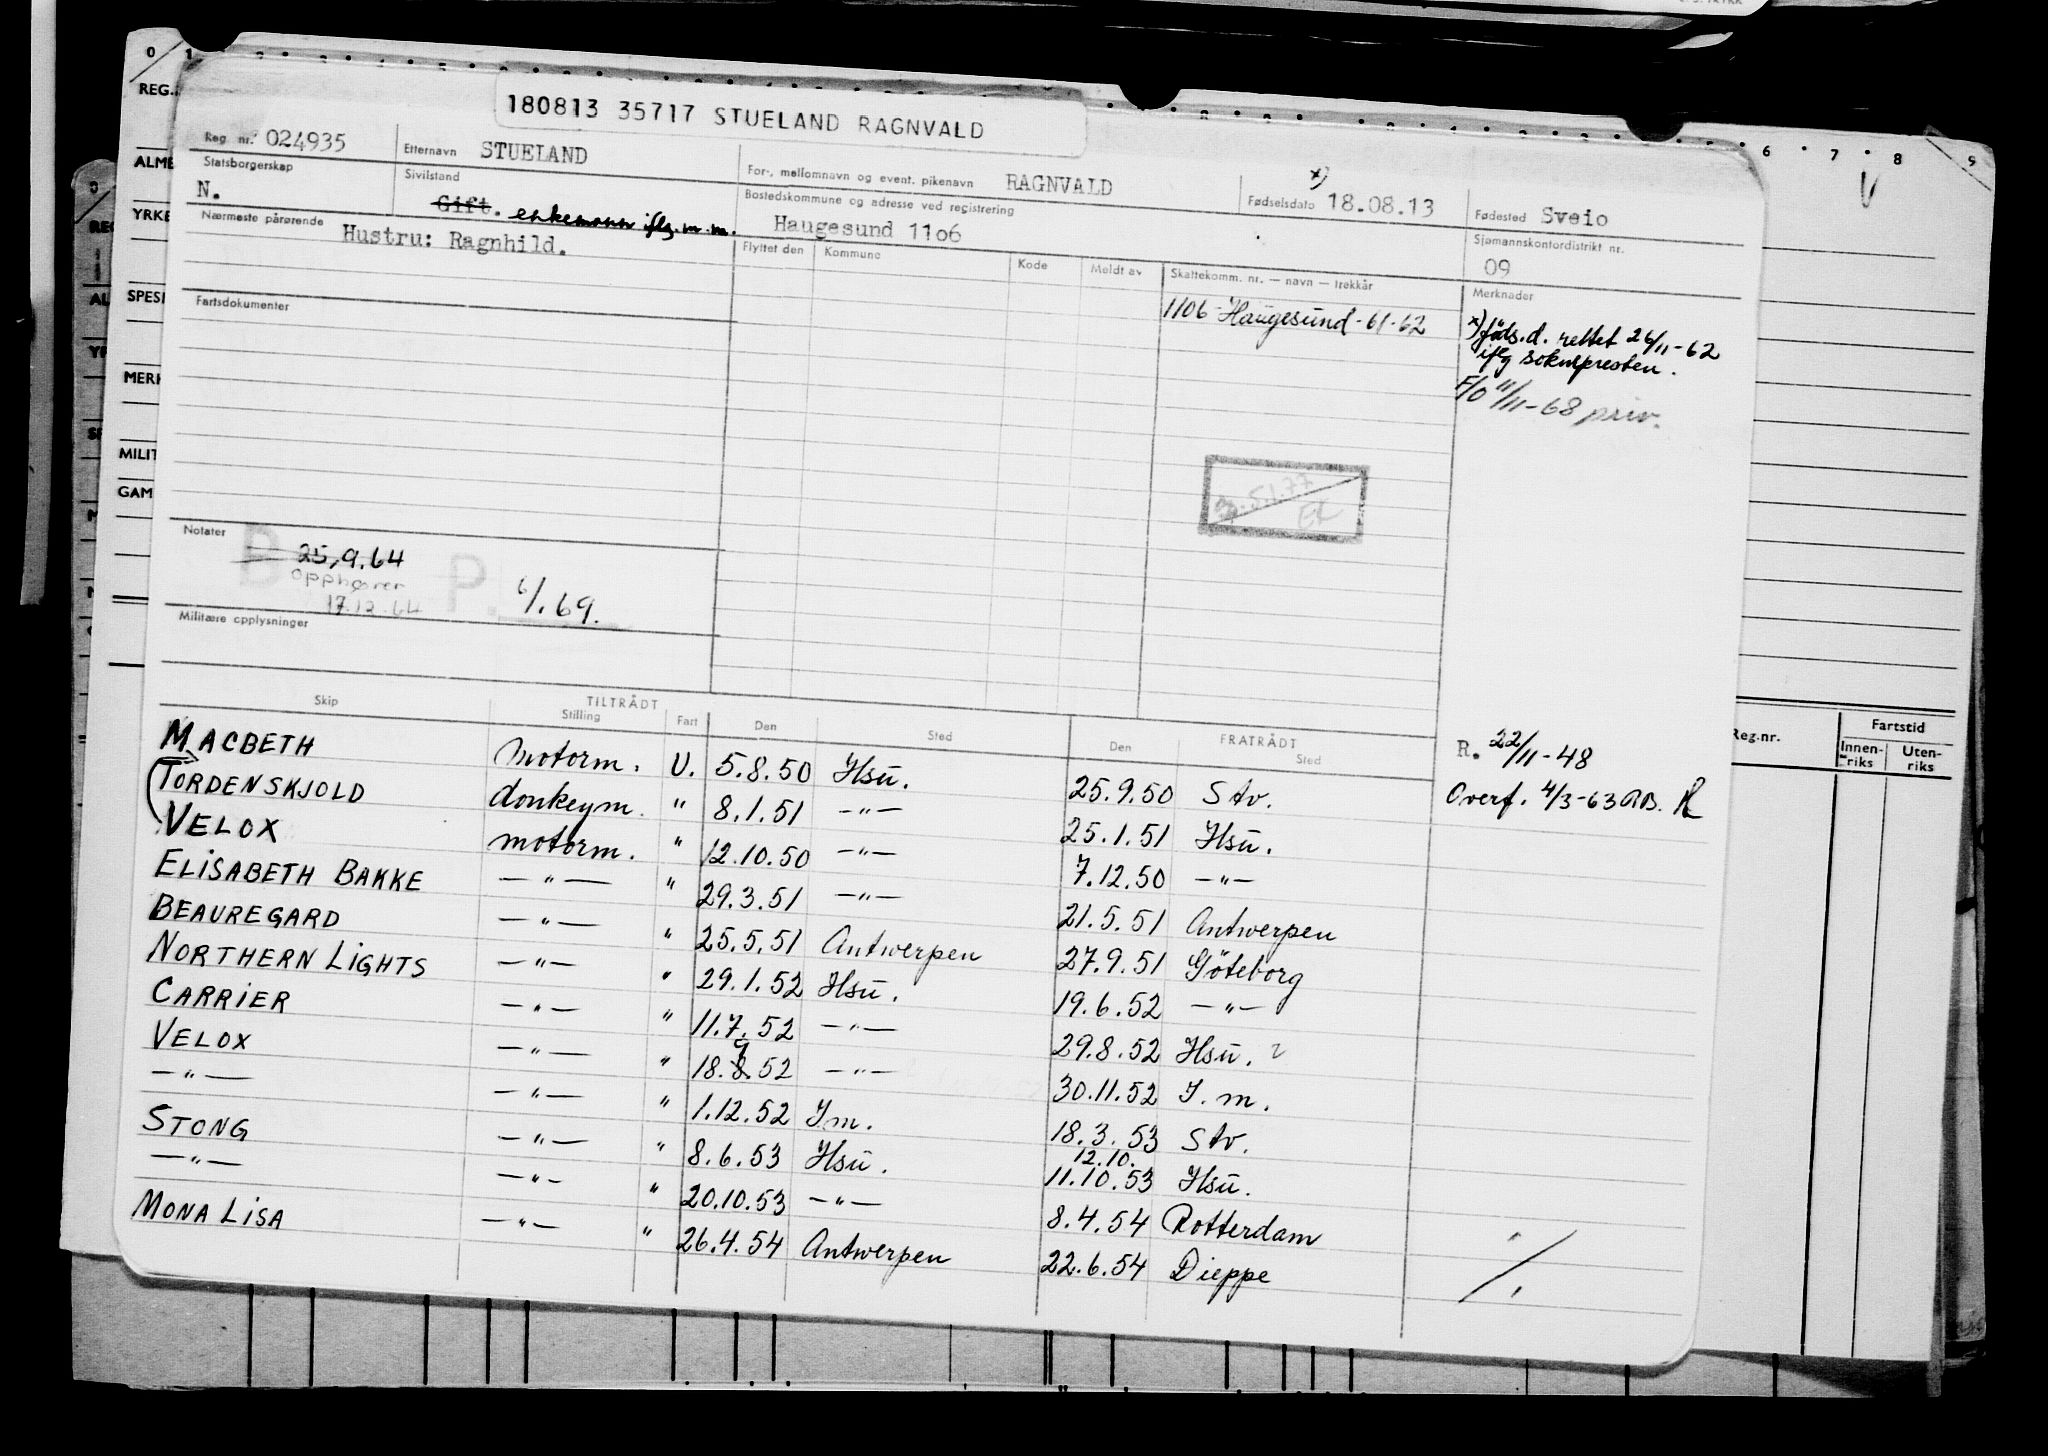 180813 35717 STUELAND RAGNVALD
Reg. nr. 024935 Etternavn STUELAND For-, mellomnavn og event. pikenavn RAGNVALD Fødselsdato x) 18.08.13 Fødested Sveio
Statsborgerskap N. Sivilstand Gift. enkemann iflg. m.m. Bostedskommune og adresse ved registrering Haugesund 11o6 Sjømannskontordistrikt nr. 09
Nærmeste pårørende Hustru: Ragnhild. Flyttet den Kommune Kode Meldt av Skattekomm. nr. — navn — trekkår Merknader
1106 Haugesund - 61-62
x) føds.d. rettet 26/11-62
iflg soknepresten.
F/O 11/11-68 priv.
Fartsdokumenter
5.1.77
EK
Notater
25.9.64
Opphører
17.12.64
B P.
6/.69.
Militære opplysninger
Skip TILTRÅDT Stilling Fart Den Sted FRATRÅDT Den Sted
R. 22/11-48
Overf. 4/3-63
MACBETH motorm. U. 5.8.50 Hsu. 25.9.50 Stv.
TORDENSKJOLD donkeym. " 8.1.51 —"— 25.1.51 Hsu.
VELOX motorm. " 12.10.50 —"— 7.12.50 —"—
ELISABETH BAKKE —"— " 29.3.51 —"— 21.5.51 Antwerpen
BEAUREGARD —"— " 25.5.51 Antwerpen 27.9.51 Göteborg
NORTHERN LIGHTS —"— " 29.1.52 Hsu. 19.6.52 —"—
CARRIER —"— " 11.7.52 —"— 29.8.52 Hsu.
VELOX —"— " 18.9.52 —"— 30.11.52 I.m.
—"— —"— " 1.12.52 I.m. 18.3.53 Stv.
STONG —"— " 8.6.53 Hsu. 12.10. 11.10.53 Hsu.
—"— —"— " 20.10.53 —"— 8.4.54 Rotterdam
MONA LISA —"— " 26.4.54 Antwerpen 22.6.54 Dieppe
0 1
REG.
ALME
YRKE
SPESI
MERK
MILIT
GAM
6 7 8 9
Reg.nr. Fartstid
Innen-riks Uten-riks